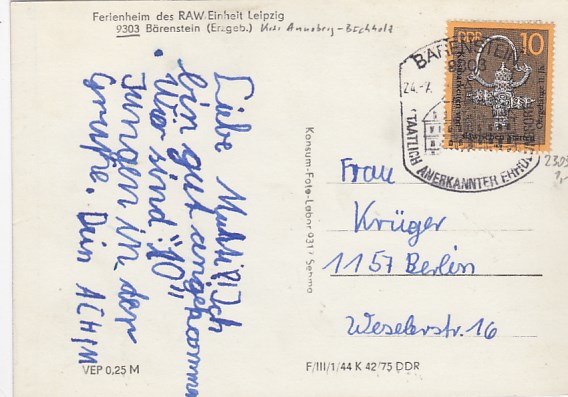 Ferienheim des RAW Einheit Leipzig
9303 Bärenstein (Erzgeb.) Kreis Annaberg-Buchholz
Liebe Mutti! Ich
bin gut angekommen
. Wir sind "10"
Jungen in der
Gruppe. Dein ACHIM
VEP 0,25 M
Konsum-Foto-Labor 9317 Sehma
F/III/1/44 K 42/75 DDR
DDR 10
BÄRENSTEIN
9303
24.-7.
STAATLICH ANERKANNTER ERHOL
Frau
Krüger
1157 Berlin
Weselerstr. 16